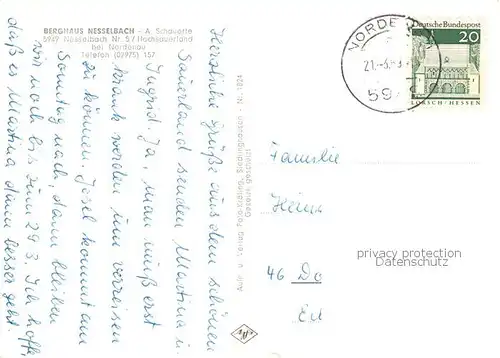 BERGHAUS NESSELBACH - A. Schauerte
5949 Nesselbach Nr. 5 / Hochsauerland
bei Nordenau
Telefon (02975) 157
Herzliche Grüße aus dem schönen
Sauerland senden Martina u.
Ingrid. Ja, man muß erst
krank werden um verreisen
zu können. Josef kommt am
Sonntag nach, dann bleiben
wir noch bis zum 29.3. Ich hoffe,
daß es Martina dann besser geht.
Gesetzl. geschützt
NORDE
21.-3.
Deutsche Bundespost
20
LORSCH · HESSEN
Familie
Heinz
46 Do
privacy protection
Datenschutz